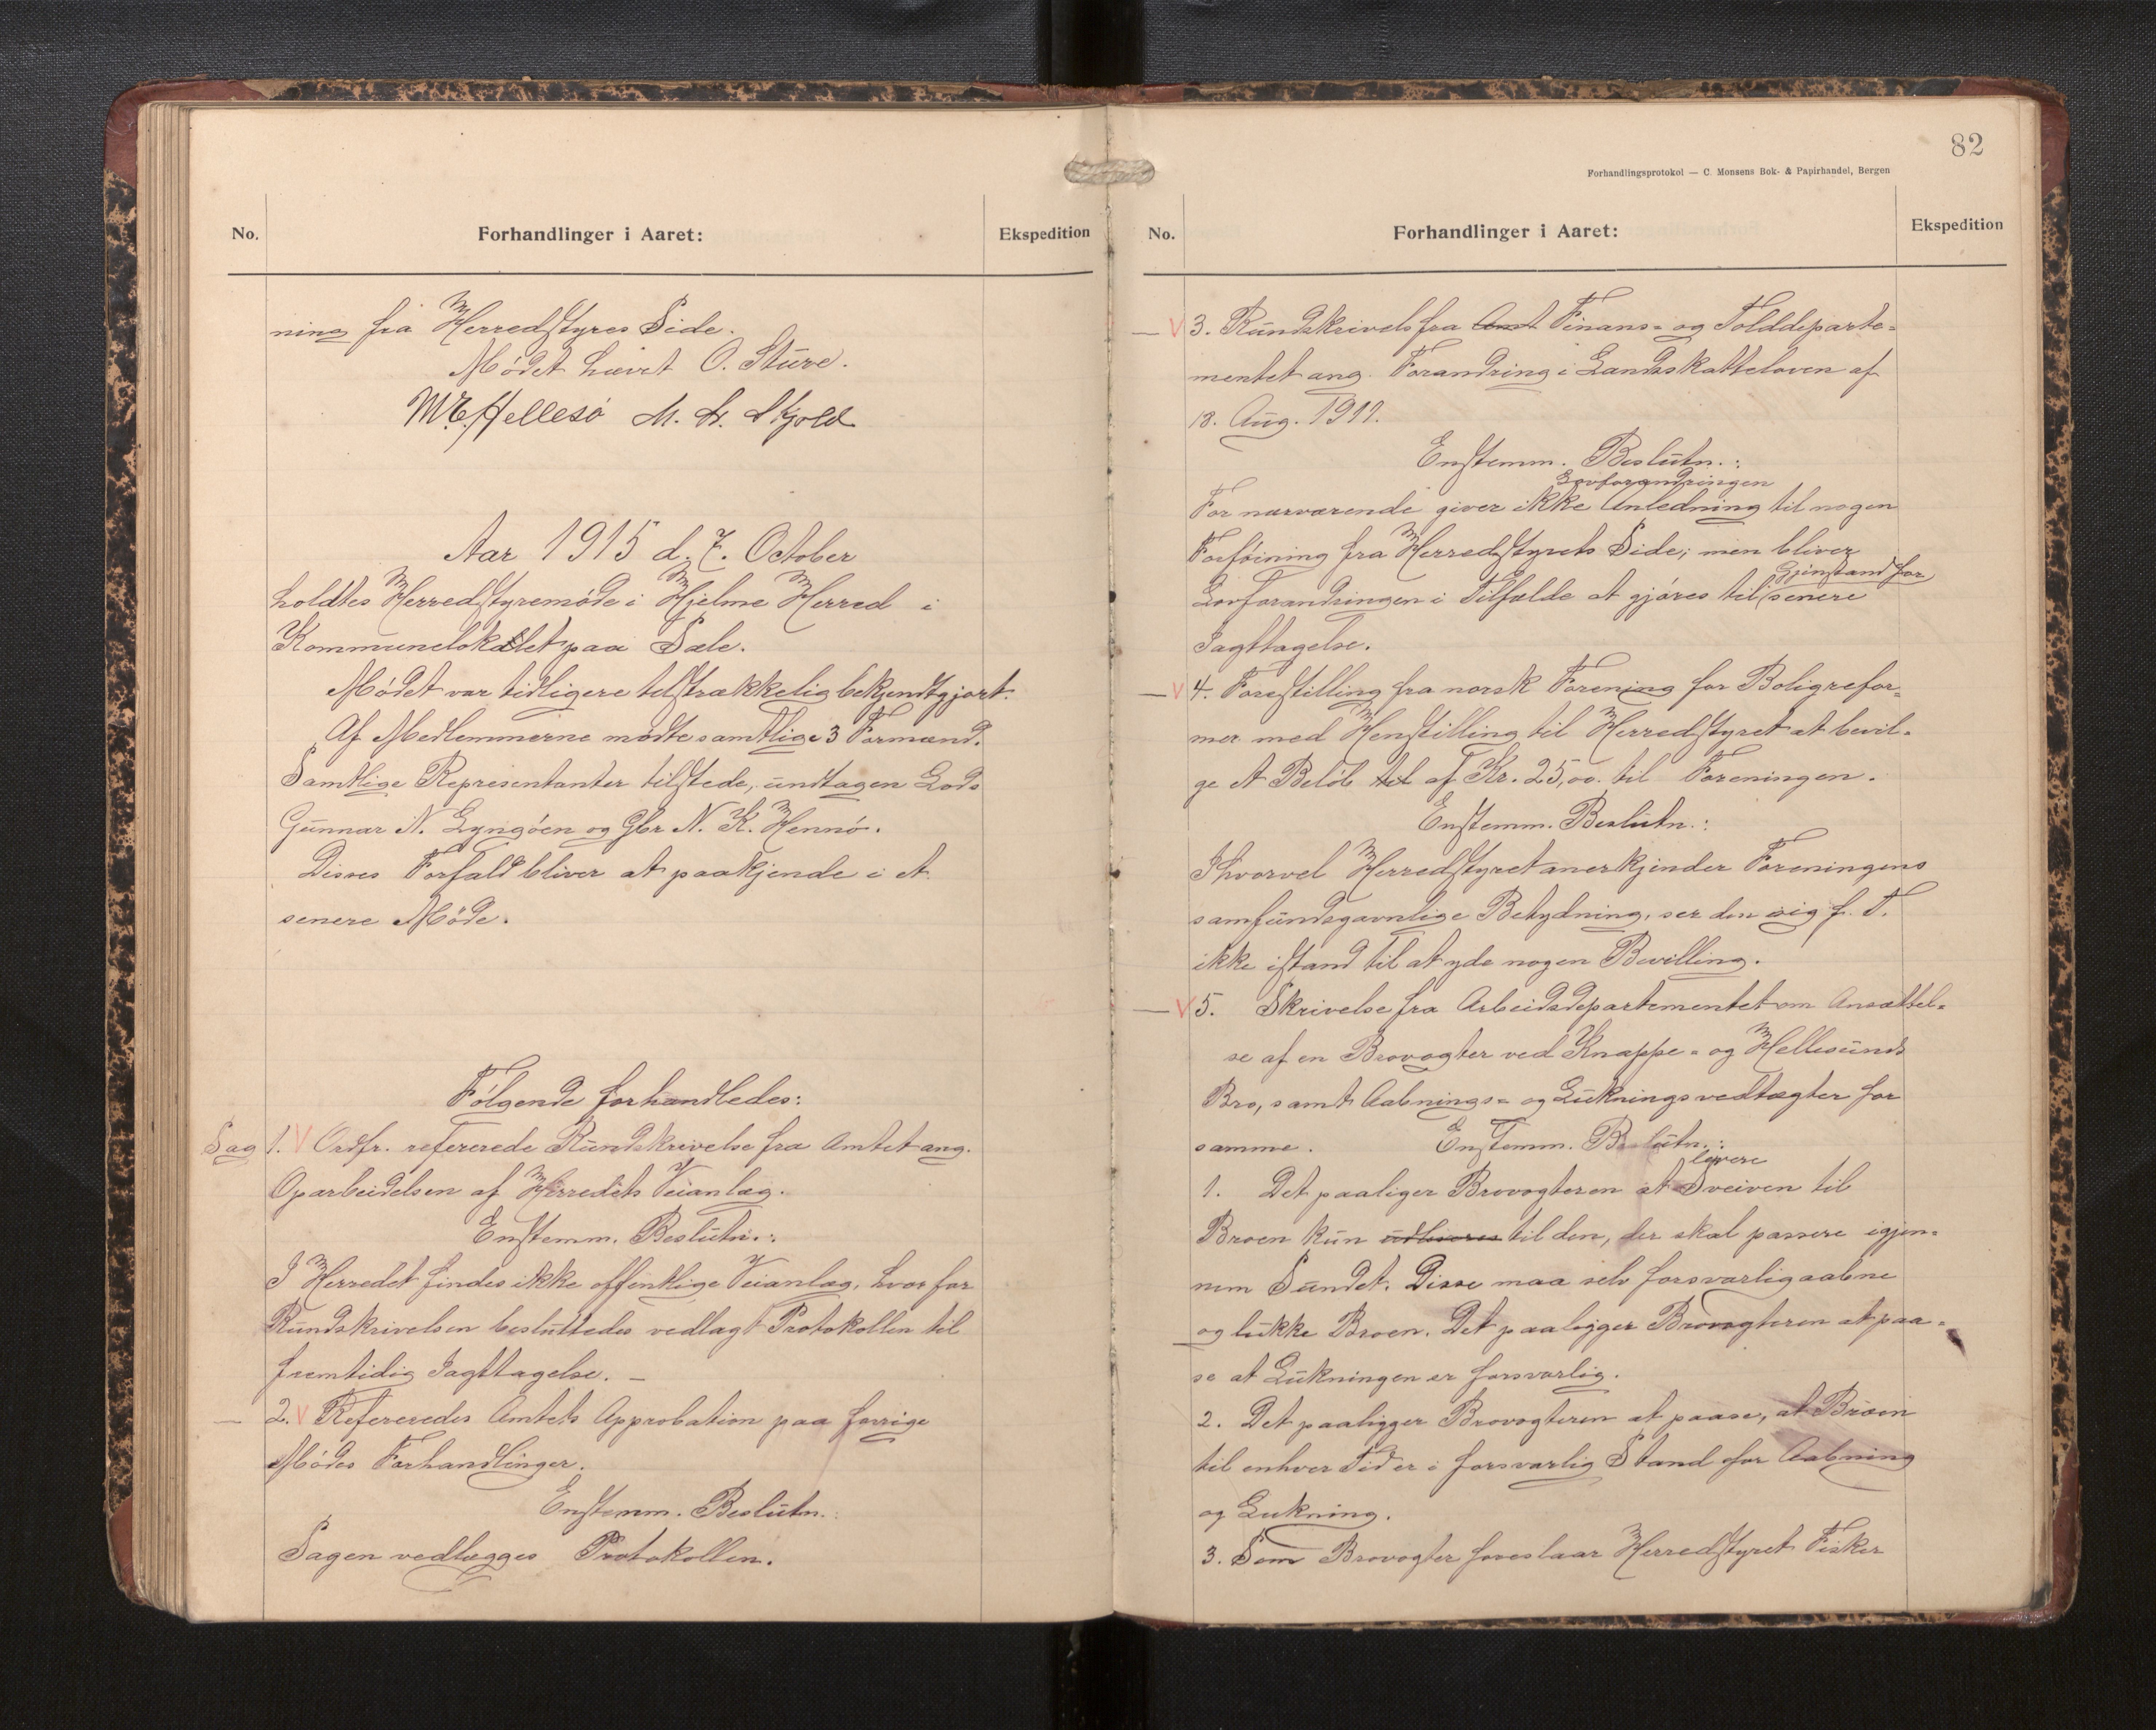 No.
Forhandlinger i Aaret:
Ekspedition
ning fra Herredstyres Side.
Mødet hævet O. Stüre.
M. E. Hellesö M. A. Skjold
Aar 1915 d. 7. October
holdtes Herredstyremøde i Hjelme Herred i
Kommunelokalet paa Sæle.
Mødet var tidligere tilstrækkelig bekjendtgjort.
Af Medlemmerne mødte samtlige 3 Formænd.
Samtlige Representanter tilstede, undtagen Lods
Gunnar N. Lyngöen og Gbr N. K. Hennö.
Disses Forfald bliver at paakjende i et
senere Møde.
Følgende forhandledes:
Sag 1. V Ordfr. refererede Rundskrivelse fra Amtet ang.
Oparbeidelsen af Herredets Veianlæg.
Enstemm. Beslutn.:
I Herredet findes ikke offentlige Veianlæg, hvorfor
Rundskrivelsen besluttedes vedlagt Protokollen til
fremtidig Iagttagelse. –
— 2. V Refereredes Amtets Approbation paa forrige
Mødes Forhandlinger.
Enstemm. Beslutn.:
Sagen vedlægges Protokollen.
82
Forhandlingsprotokol — C. Monsens Bok- & Papirhandel, Bergen
No.
Forhandlinger i Aaret:
Ekspedition
— V 3. Rundskrivels fra Amt Finans- og Tolddeparte-
mentet ang. Forandring i Landsskatteloven af
18. Aug. 1911.
Enstemm. Beslutn.:
Lovforandringen
For nærværende giver ikke Anledning til nogen
Forføining fra Herredstyrets Side; men bliver
Gjenstand for
Lovforandringen i Tilfælde at gjøres til senere
Iagttagelse.
— V 4. Forestilling fra norsk Forening for Boligrefor-
mer med Henstilling til Herredstyret at bevil-
ge et Beløb til af Kr. 25,00. til Foreningen.
Enstemm. Beslutn.:
Ihvorvel Herredstyret anerkjender Foreningens
samfundsgavnlige Betydning, ser den sig f. T.
ikke istand til at yde nogen Bevilling.
— V 5. Skrivelse fra Arbeidsdepartementet om Ansættel-
se af en Brovogter ved Knappe- og Hellesunds
Bro, samt Aabnings- og Lukningsvedtægter for
samme. Enstemm. Beslutn.:
levere
1. Det paaliger Brovogteren at Sveiven til
Broen kun udleveres til den, der skal passere igjen-
nem Sundet. Disse maa selv forsvarlig aabne
og lukke Broen. Det paaligger Brovogteren at paa-
se at Lukningen er forsvarlig.
2. Det paaligger Brovogteren at paase, at Broen
til enhver Tid er i forsvarlig Stand for Aabning
og Lukning.
3. Som Brovogter foreslaar Herredstyret Fisker